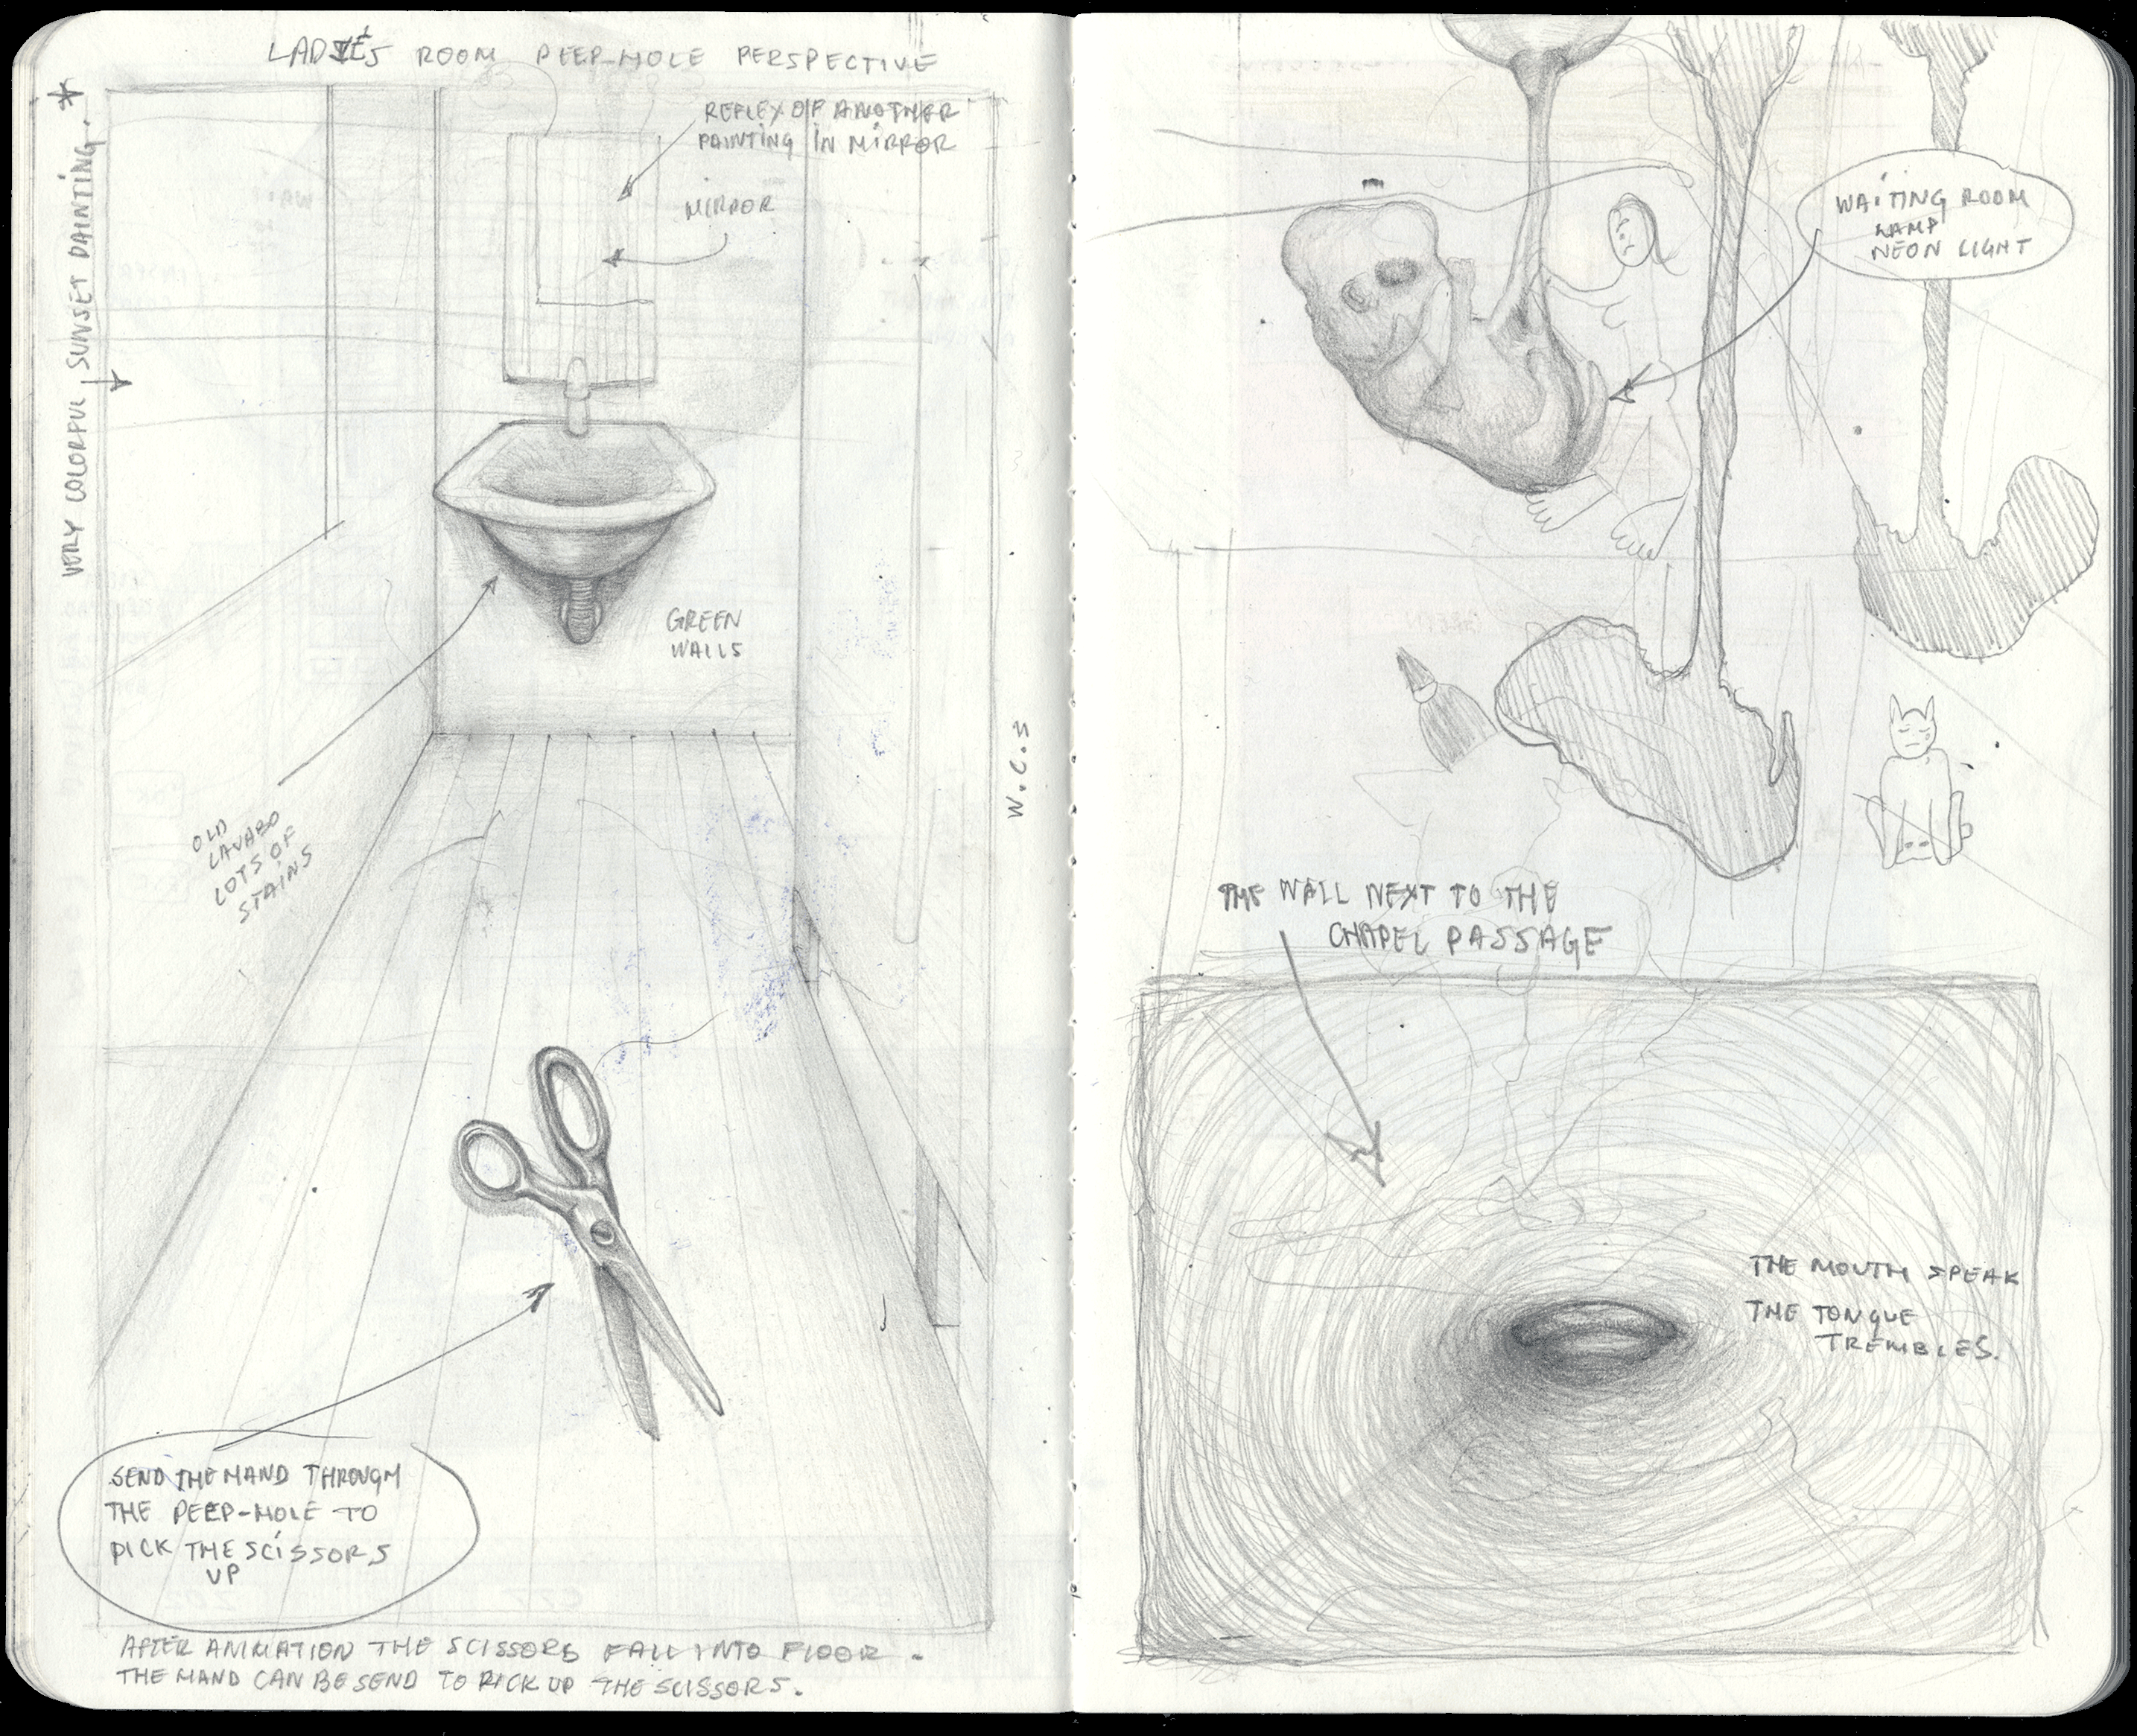 LADIES ROOM PEEP-HOLE PERSPECTIVE
VERY COLORFUL SUNSET PAINTING. *
REFLEX OF ANOTHER
PAINTING IN MIRROR
MIRROR
GREEN
WALLS
OLD
LAVABO
LOTS OF
STAINS
W.C.S
SEND THE HAND THROUGH
THE PEEP-HOLE TO
PICK THE SCISSORS
UP
AFTER ANIMATION THE SCISSORS FALL INTO FLOOR.
THE HAND CAN BE SEND TO PICK UP THE SCISSORS.
WAITING ROOM
LAMP
NEON LIGHT
THE WALL NEXT TO THE
CHAPEL PASSAGE
THE MOUTH SPEAK
THE TONGUE
TREMBLES.